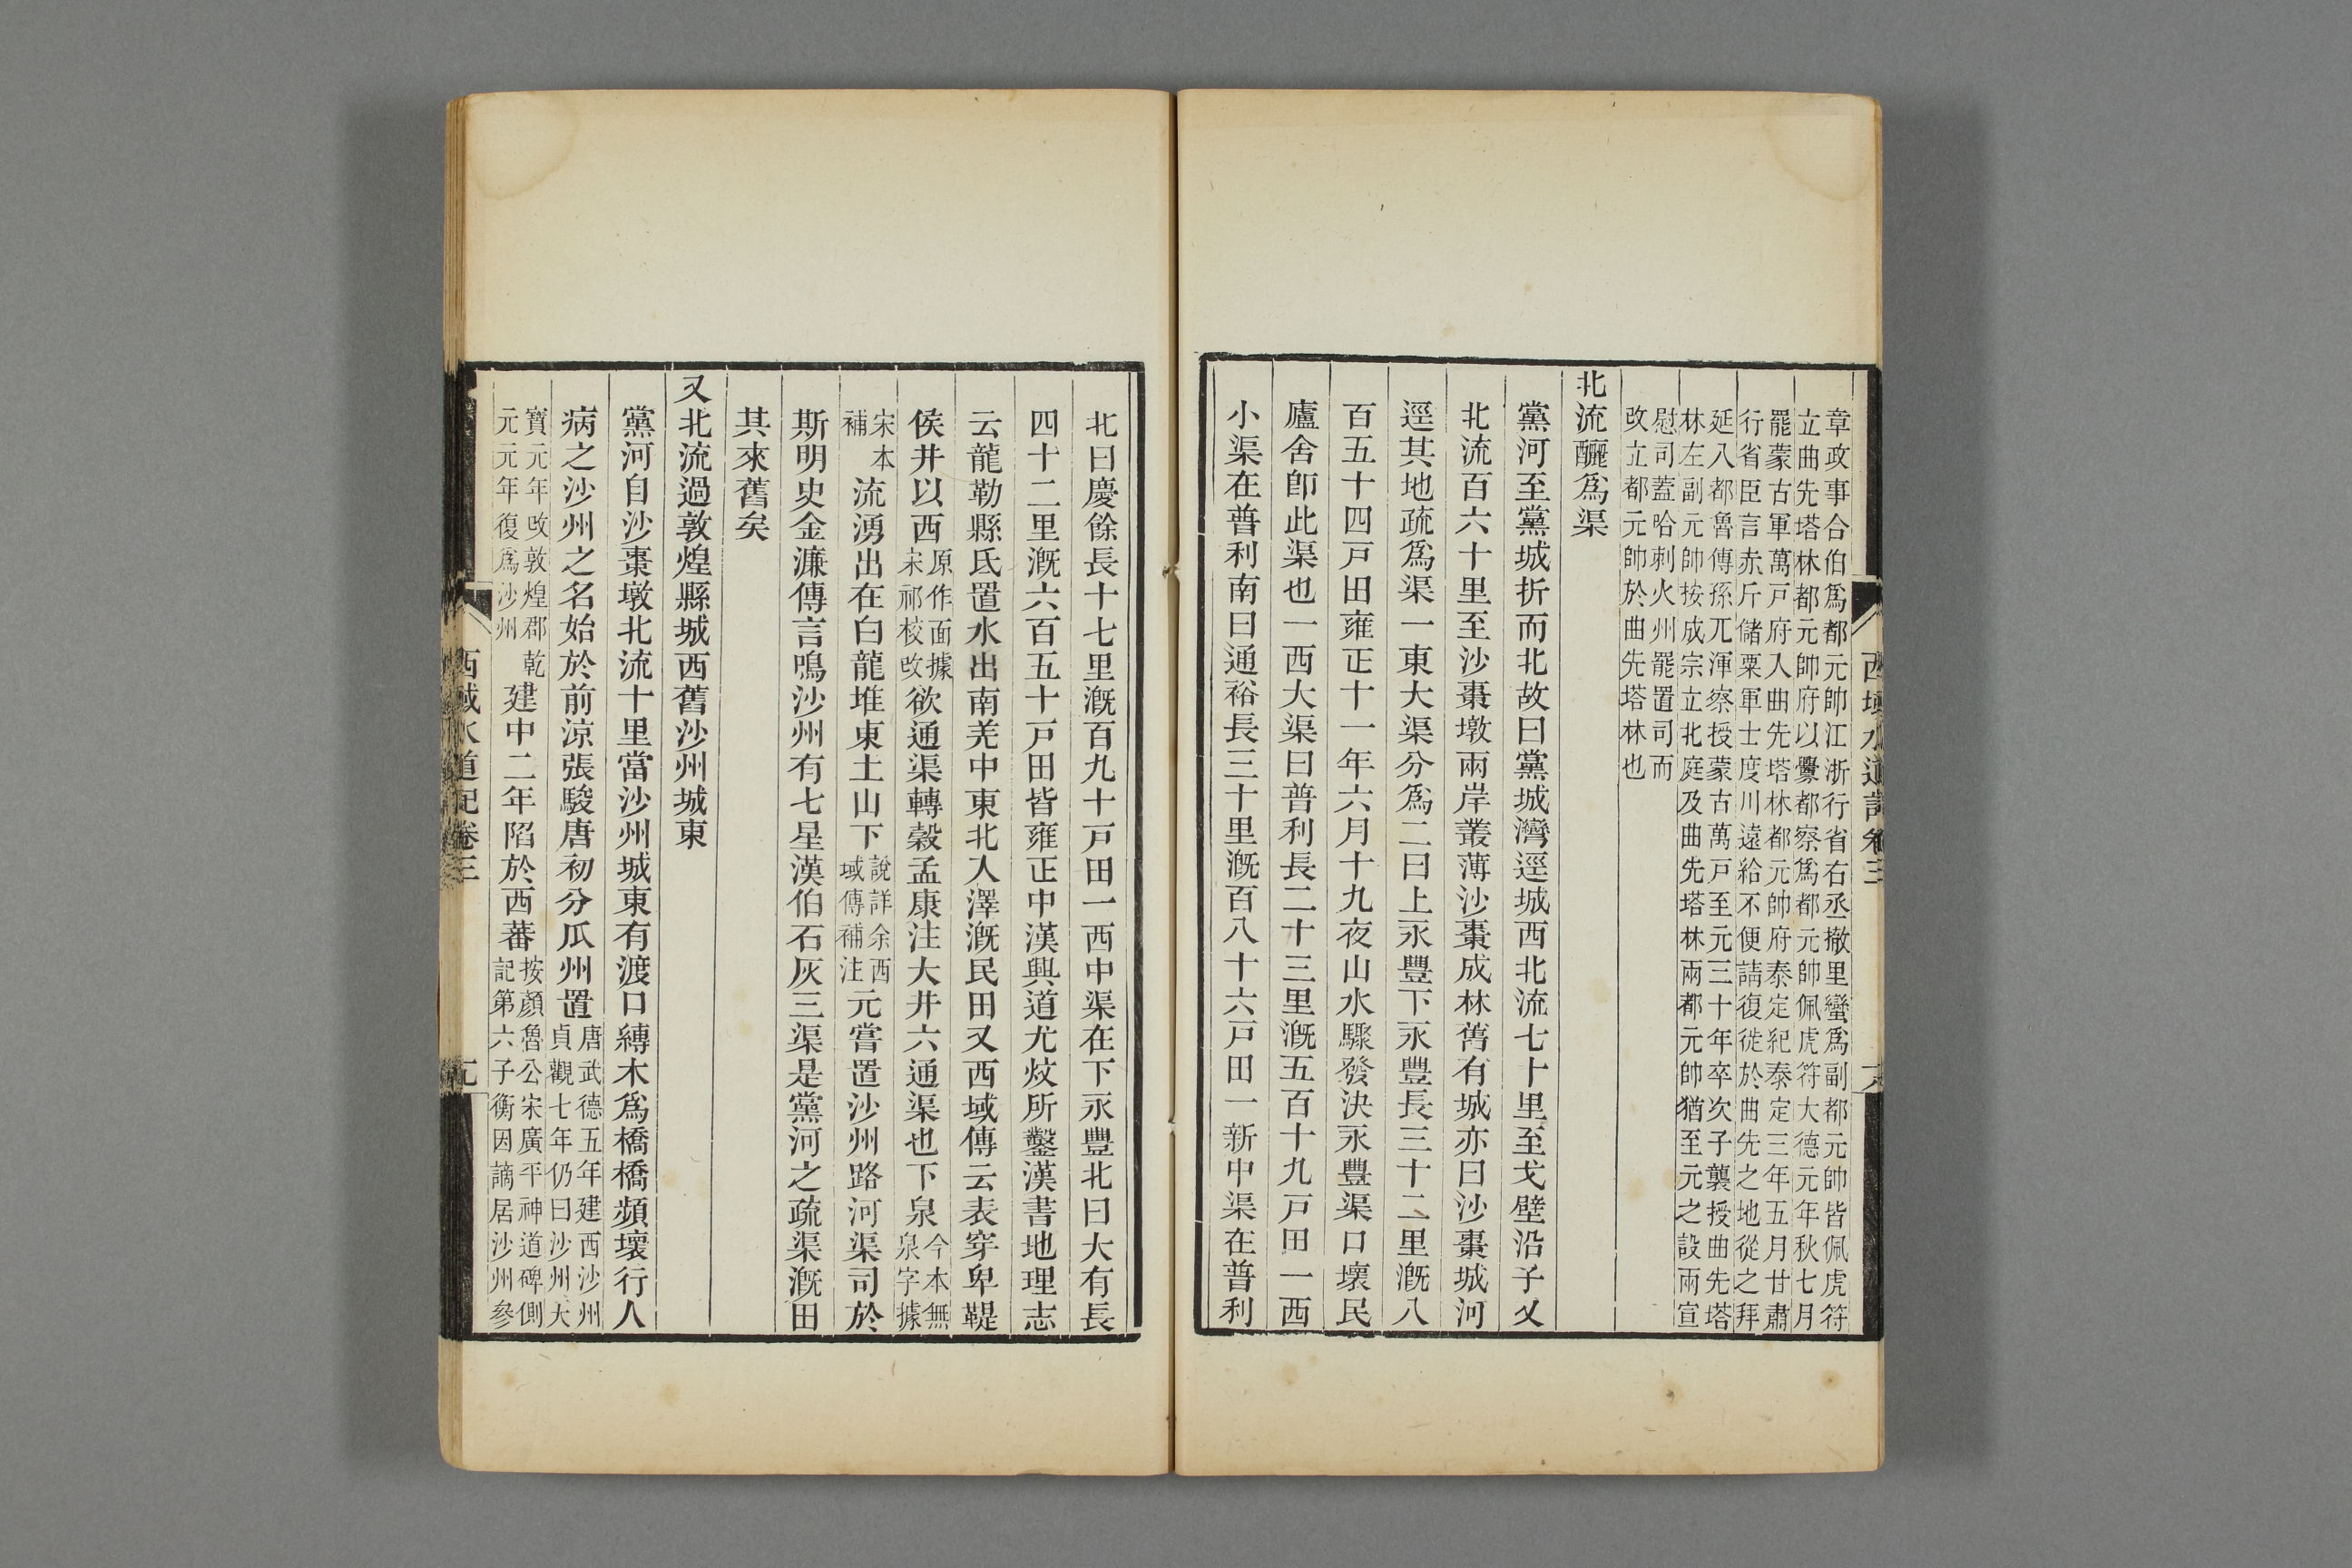 章政事合伯爲都元帥江浙行省右丞撤里蠻爲副都元帥皆佩虎符
立曲先塔林都元帥府以釁都察爲都元帥佩虎符大德元年秋七月
罷蒙古軍萬戸府入曲先塔林都元帥府泰定紀泰定三年五月甘肅
行省臣言赤斤儲粟軍士度川遠給不便請復徙於曲先之地從之拜
延八都魯傳孫兀渾察授蒙古萬戸至元三十年卒次子襲授曲先塔
林左副元帥按成宗立北庭及曲先塔林兩都元帥猶至元之設兩宣
慰司蓋哈刺火州罷置司而
改立都元帥於曲先塔林也
北流釃爲渠
黨河至黨城折而北故曰黨城灣逕城西北流七十里至戈壁沿子又
北流百六十里至沙棗墩兩岸叢薄沙棗成林舊有城亦曰沙棗城河
逕其地疏爲渠一東大渠分爲二曰上永豐下永豐長三十二里漑八
百五十四戸田雍正十一年六月十九夜山水驟發決永豐渠口壞民
廬舍卽此渠也一西大渠曰普利長二十三里漑五百十九戸田一西
小渠在普利南曰通裕長三十里漑百八十六戸田一新中渠在普利
北曰慶餘長十七里漑百九十戸田一西中渠在下永豐北曰大有長
四十二里漑六百五十戸田皆雍正中漢興道尤㪫所鑿漢書地理志
云龍勒縣氐置水出南羌中東北入澤漑民田又西域傳云表穿卑鞮
侯井以西
原作面據
宋祁校改
欲通渠轉穀孟康注大井六通渠也下泉
今本無
泉字據
宋本
補
流湧出在白龍堆東土山下
說詳余西
域傳補注
元嘗置沙州路河渠司於
斯明史金濂傳言鳴沙州有七星漢伯石灰三渠是黨河之疏渠漑田
其來舊矣
又北流過敦煌縣城西舊沙州城東
黨河自沙棗墩北流十里當沙州城東有渡口縛木爲橋橋頻壞行人
病之沙州之名始於前涼張駿唐初分瓜州置
唐武德五年建西沙州
貞觀七年仍曰沙州天
寶元年改敦煌郡乾
元元年復爲沙州
建中二年陷於西蕃
按顏魯公宋廣平神道碑側
記第六子衡因謫居沙州參
西域水道記卷三